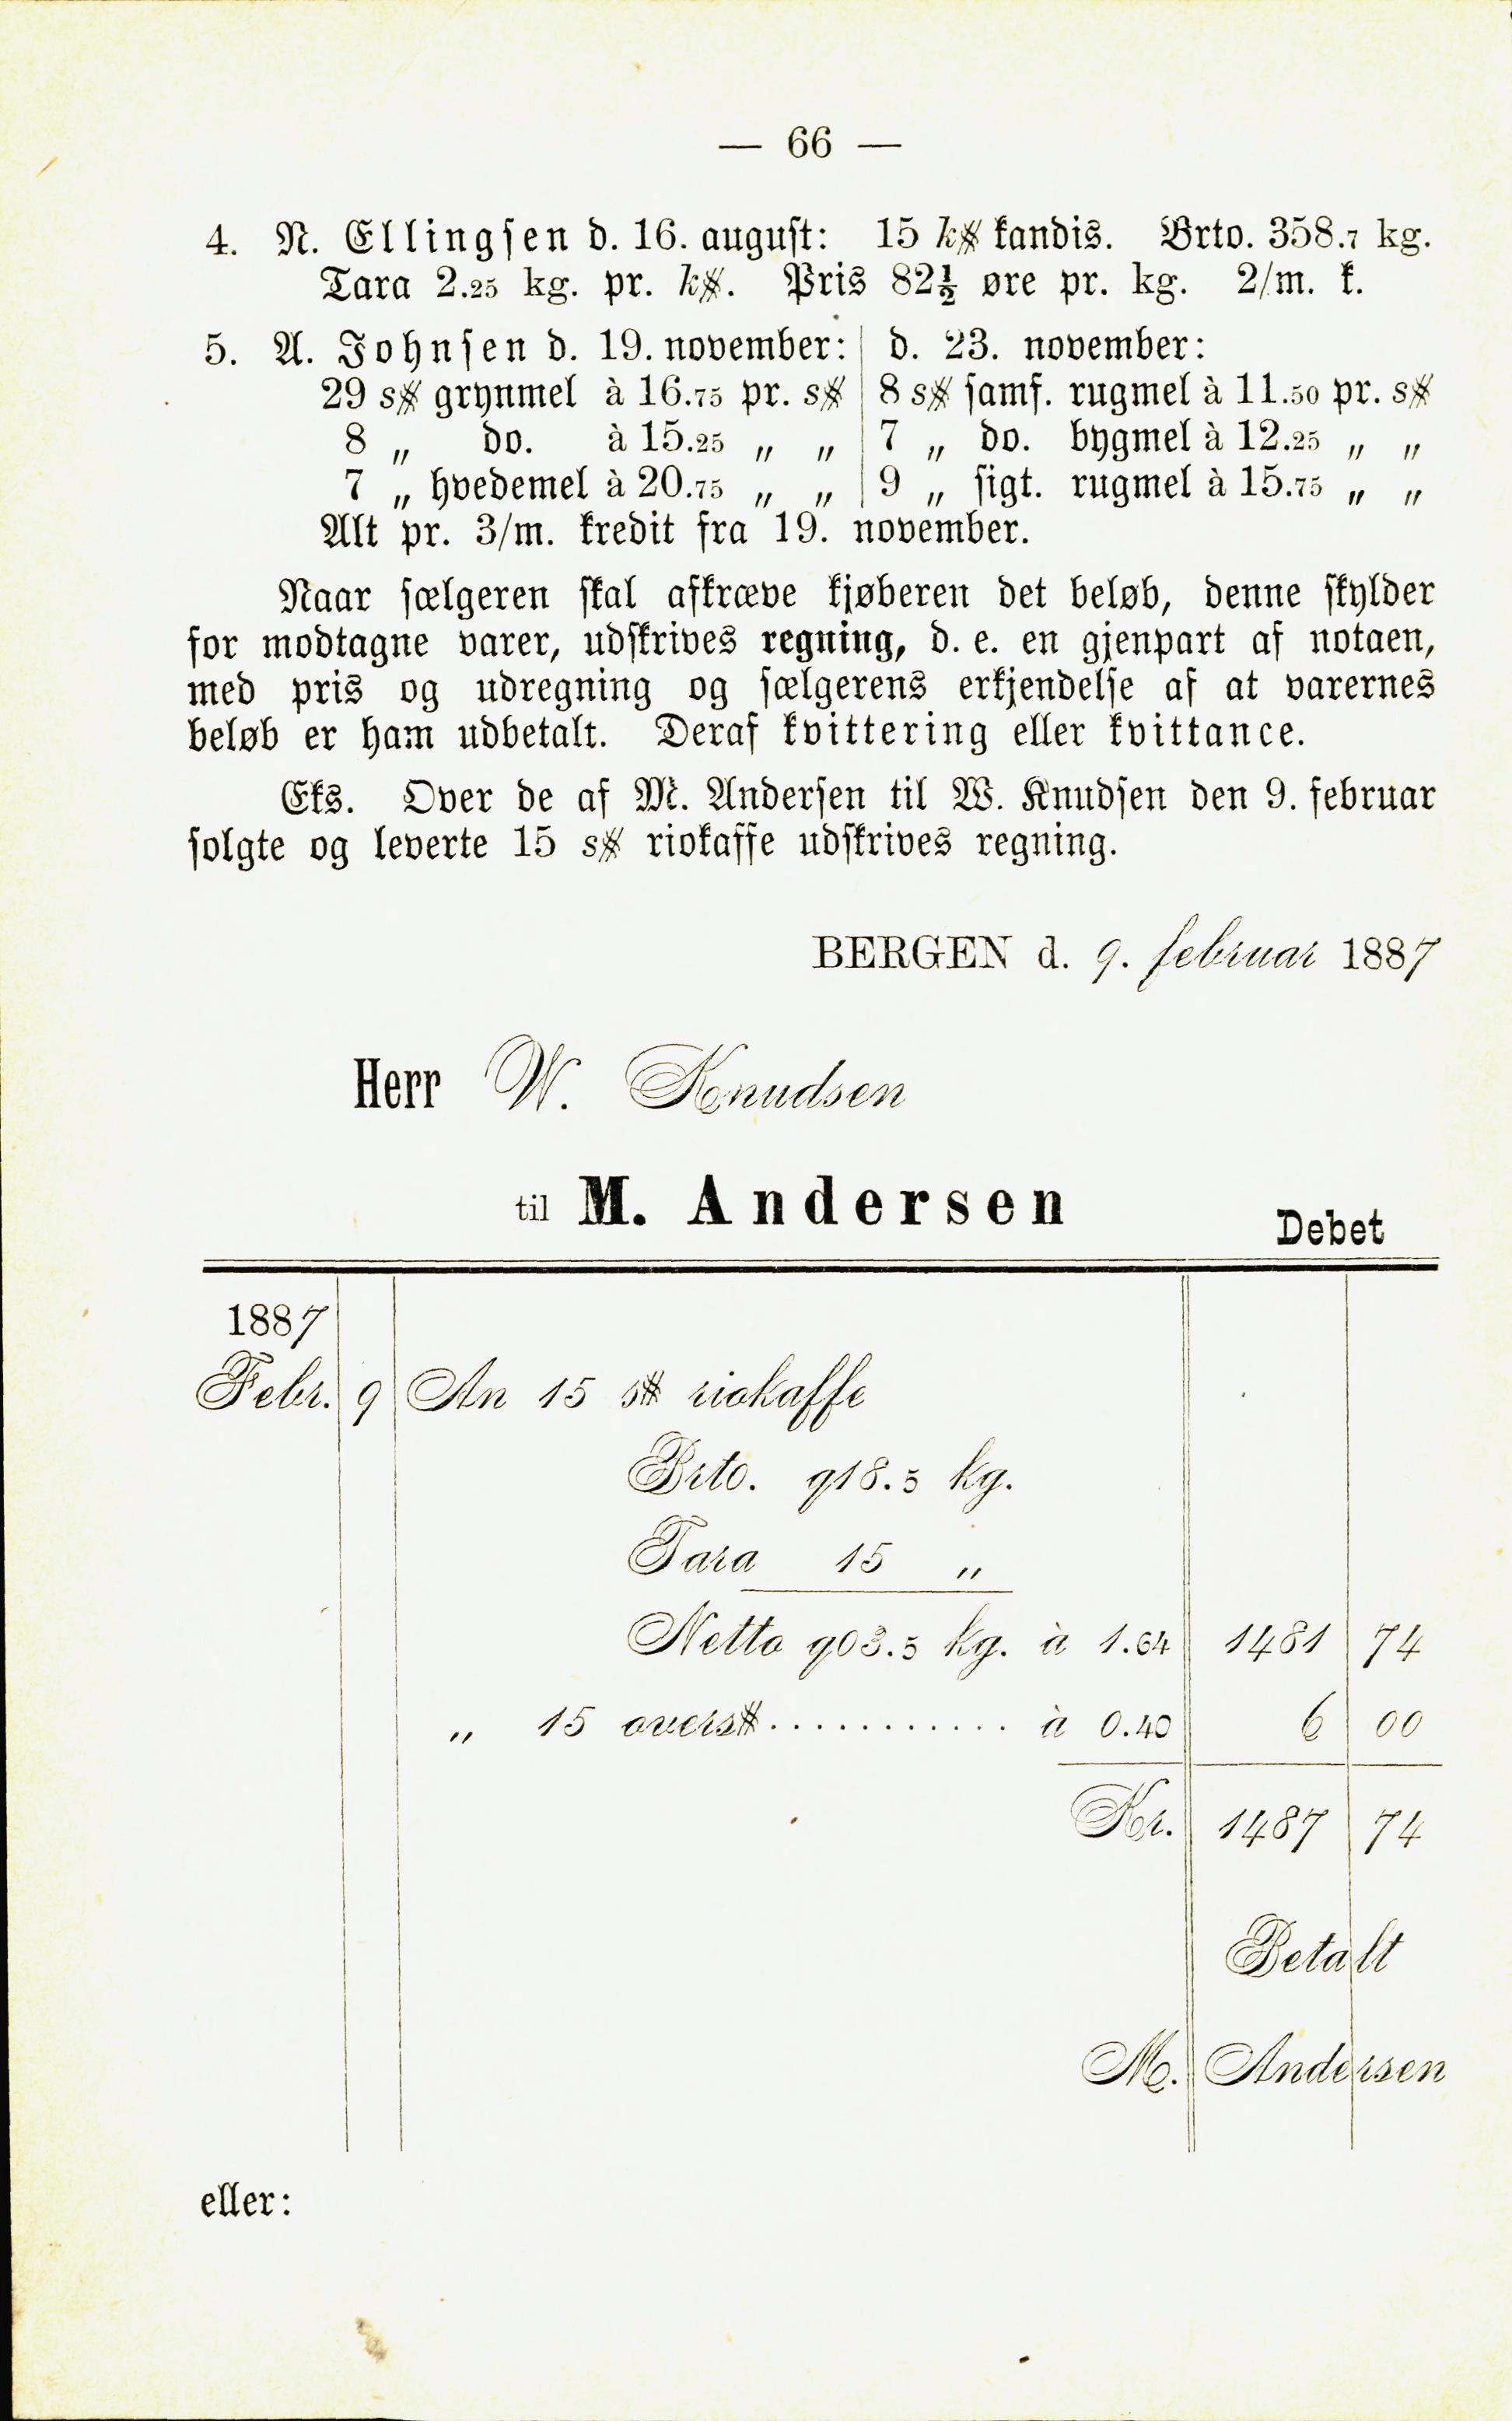 — 66 —
4. N. Ellingsen d. 16. august: 15 k# kandis. Brto. 358.7 kg.
Tara 2.25 kg. pr. k#. Pris 82½ øre pr. kg. 2/m. k.
5. A. Johnsen d. 19. november: | d. 23. november:
29 s# grynmel à 16.75 pr. s# | 8 s# samf. rugmel à 11.50 pr. s#
8 „ do. à 15.25 „ „ | 7 „ do. bygmel à 12.25 „ „
7 „ hvedemel à 20.75 „ „ | 9 „ sigt. rugmel à 15.75 „ „
Alt pr. 3/m. kredit fra 19. november.
Naar sælgeren skal afkræve kjøberen det beløb, denne skylder
for modtagne varer, udskrives regning, d. e. en gjenpart af notaen,
med pris og udregning og sælgerens erkjendelse af at varernes
beløb er ham udbetalt. Deraf kvittering eller kvittance.
Eks. Over de af M. Andersen til W. Knudsen den 9. februar
solgte og leverte 15 s# riokaffe udskrives regning.
BERGEN d. 9. februar 1887
Herr W. Knudsen
til M. Andersen
Debet
1887
Febr. 9 An 15 s# riokaffe
Brto. 918.5 kg.
Tara 15 „
Netto 903.5 kg. à 1.64 1481 74
„ 15 overs# ........... à 0.40 6 00
Kr. 1487 74
Betalt
M. Andersen
eller: